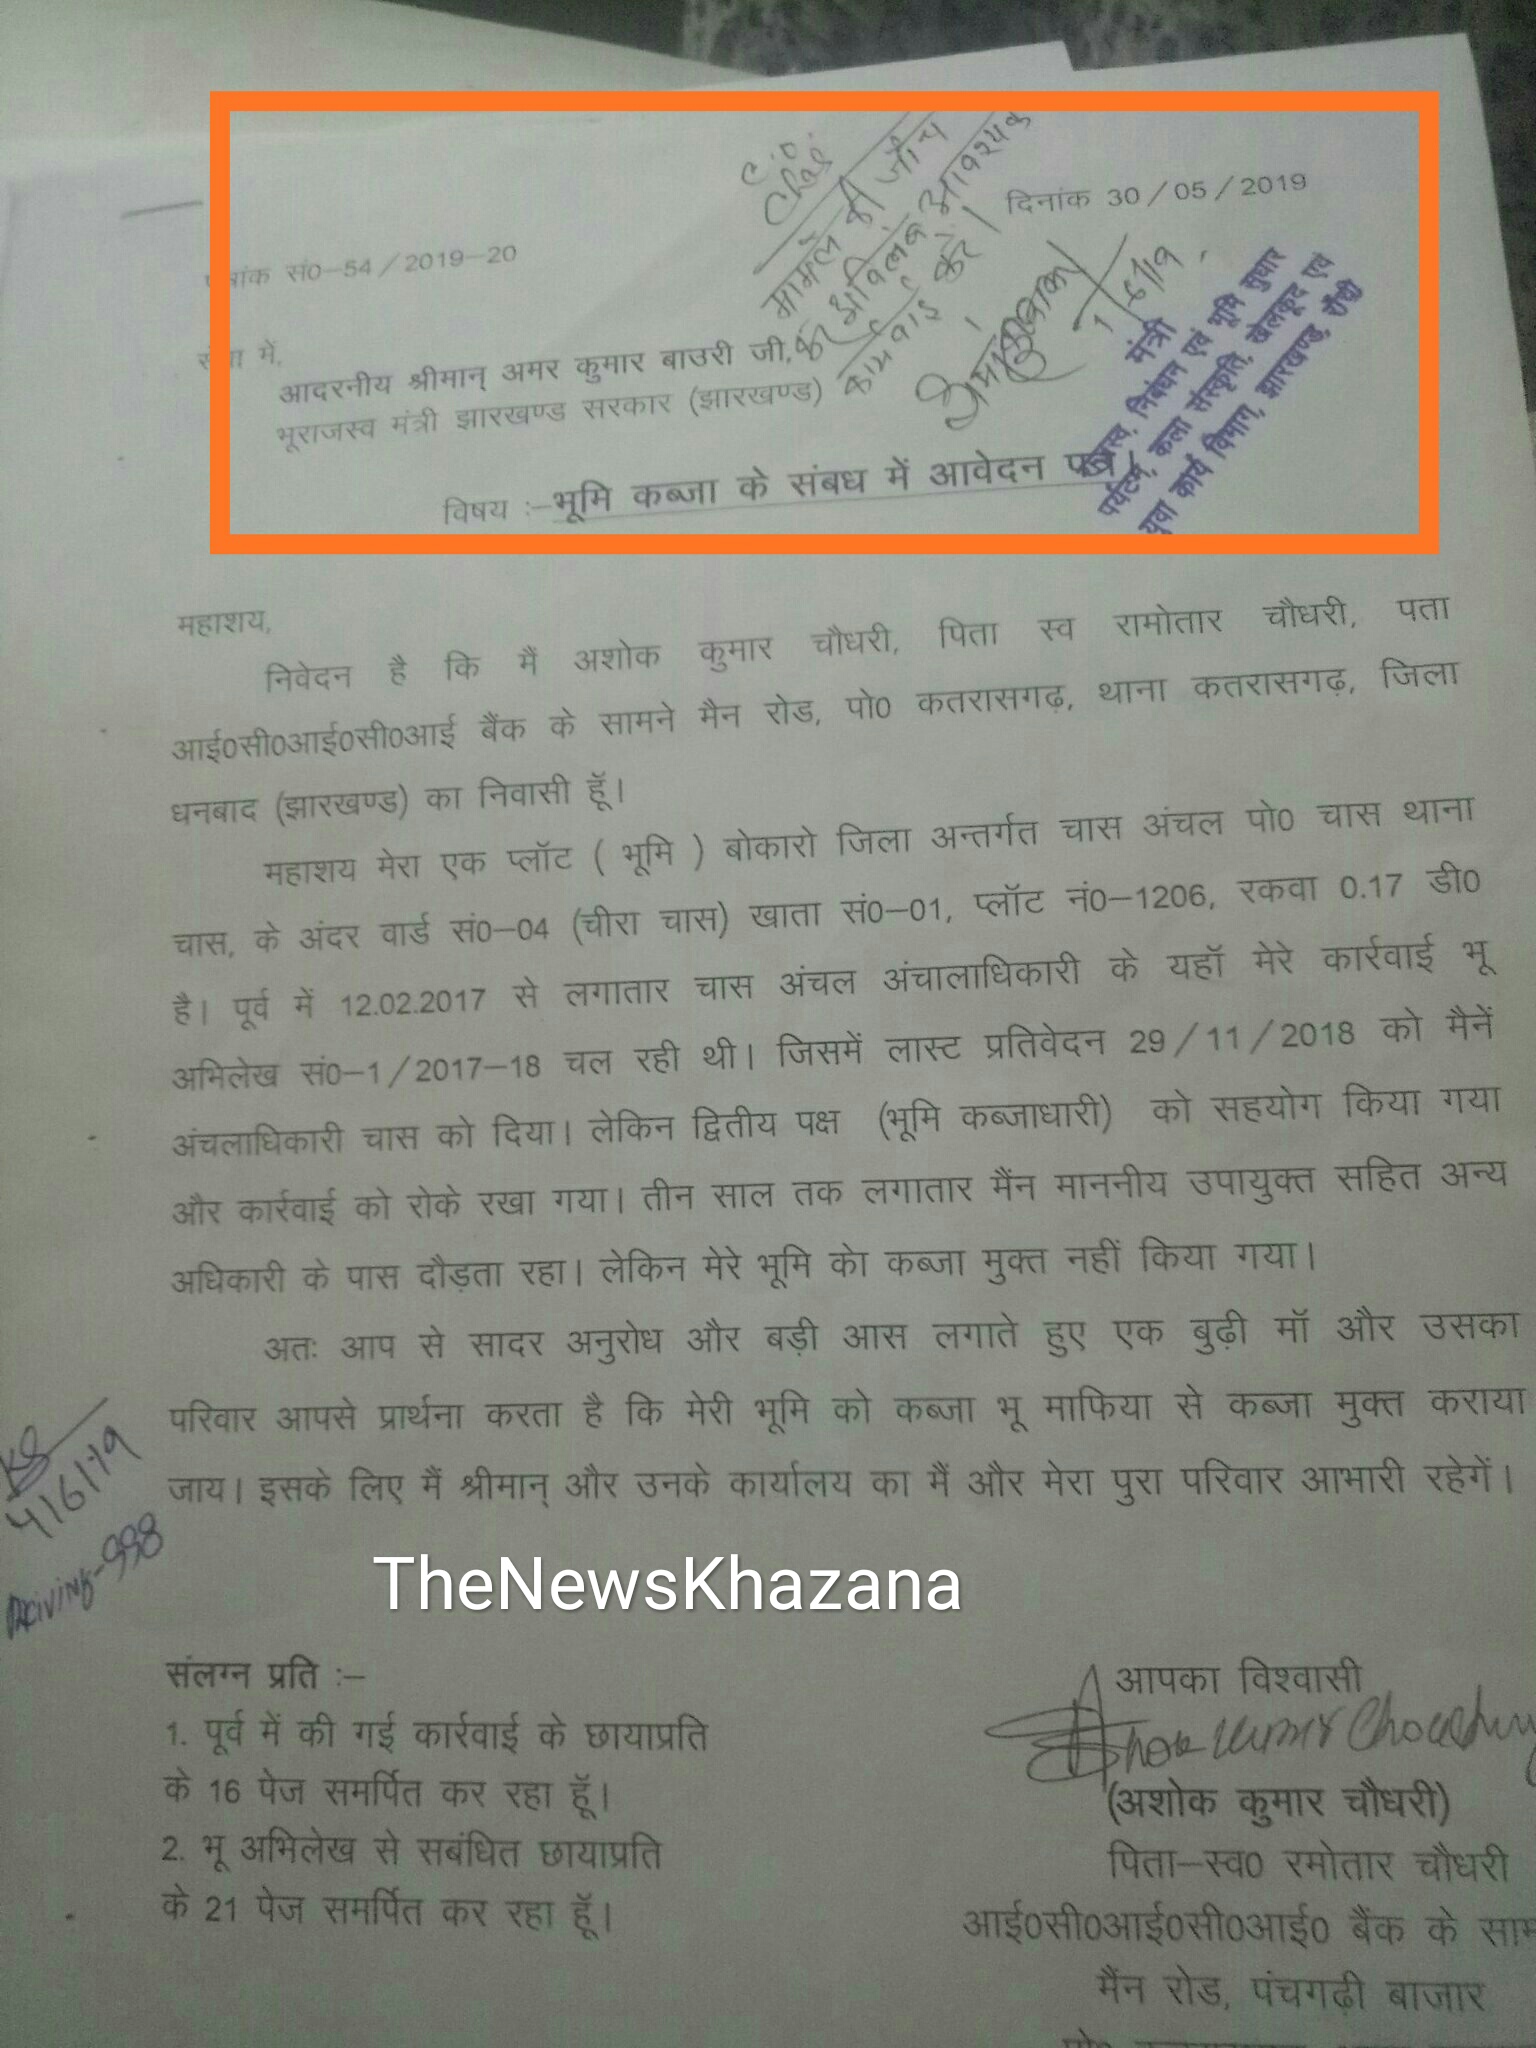 C.O.
Chas
मामले की जाँच
कर अविलंब आवश्यक
कार्रवाई करें।
1/6/19
दिनांक 30/05/2019
पत्रांक सं0-54/2019-20
सेवा में,
आदरनीय श्रीमान् अमर कुमार बाउरी जी,
भूराजस्व मंत्री झारखण्ड सरकार (झारखण्ड)
मंत्री
राजस्व, निबंधन एवं भूमि सुधार
पर्यटन, कला संस्कृति, खेलकूद एवं
युवा कार्य विभाग, झारखण्ड, राँची
विषय :-भूमि कब्जा के संबध में आवेदन पत्र।
महाशय,
निवेदन है कि मैं अशोक कुमार चौधरी, पिता स्व रामोतार चौधरी, पता
आई0सी0आई0सी0आई बैंक के सामने मैन रोड, पो0 कतरासगढ़, थाना कतरासगढ़, जिला
धनबाद (झारखण्ड) का निवासी हूॅ।
महाशय मेरा एक प्लॉट ( भूमि ) बोकारो जिला अन्तर्गत चास अंचल पो0 चास थाना
चास, के अंदर वार्ड सं0-04 (चीरा चास) खाता सं0-01, प्लॉट नं0-1206, रकवा 0.17 डी0
है। पूर्व में 12.02.2017 से लगातार चास अंचल अंचालाधिकारी के यहॉ मेरे कार्रवाई भू
अभिलेख सं0-1/2017-18 चल रही थी। जिसमें लास्ट प्रतिवेदन 29/11/2018 को मैनें
अंचलाधिकारी चास को दिया। लेकिन द्वितीय पक्ष (भूमि कब्जाधारी) को सहयोग किया गया
और कार्रवाई को रोके रखा गया। तीन साल तक लगातार मैंन माननीय उपायुक्त सहित अन्य
अधिकारी के पास दौड़ता रहा। लेकिन मेरे भूमि केा कब्जा मुक्त नहीं किया गया।
अतः आप से सादर अनुरोध और बड़ी आस लगाते हुए एक बुढ़ी मॉ और उसका
परिवार आपसे प्रार्थना करता है कि मेरी भूमि को कब्जा भू माफिया से कब्जा मुक्त कराया
जाय। इसके लिए मैं श्रीमान् और उनके कार्यालय का मैं और मेरा पुरा परिवार आभारी रहेगें।
4/6/19
998
TheNewsKhazana
संलग्न प्रति :-
1. पूर्व में की गई कार्रवाई के छायाप्रति
के 16 पेज समर्पित कर रहा हूॅ।
2. भू अभिलेख से सबंधित छायाप्रति
के 21 पेज समर्पित कर रहा हूॅ।
आपका विश्वासी
Ashok Kumar Choudhury
(अशोक कुमार चौधरी)
पिता-स्व0 रमोतार चौधरी
आई0सी0आई0सी0आई0 बैंक के साम
मैंन रोड, पंचगढ़ी बाजार